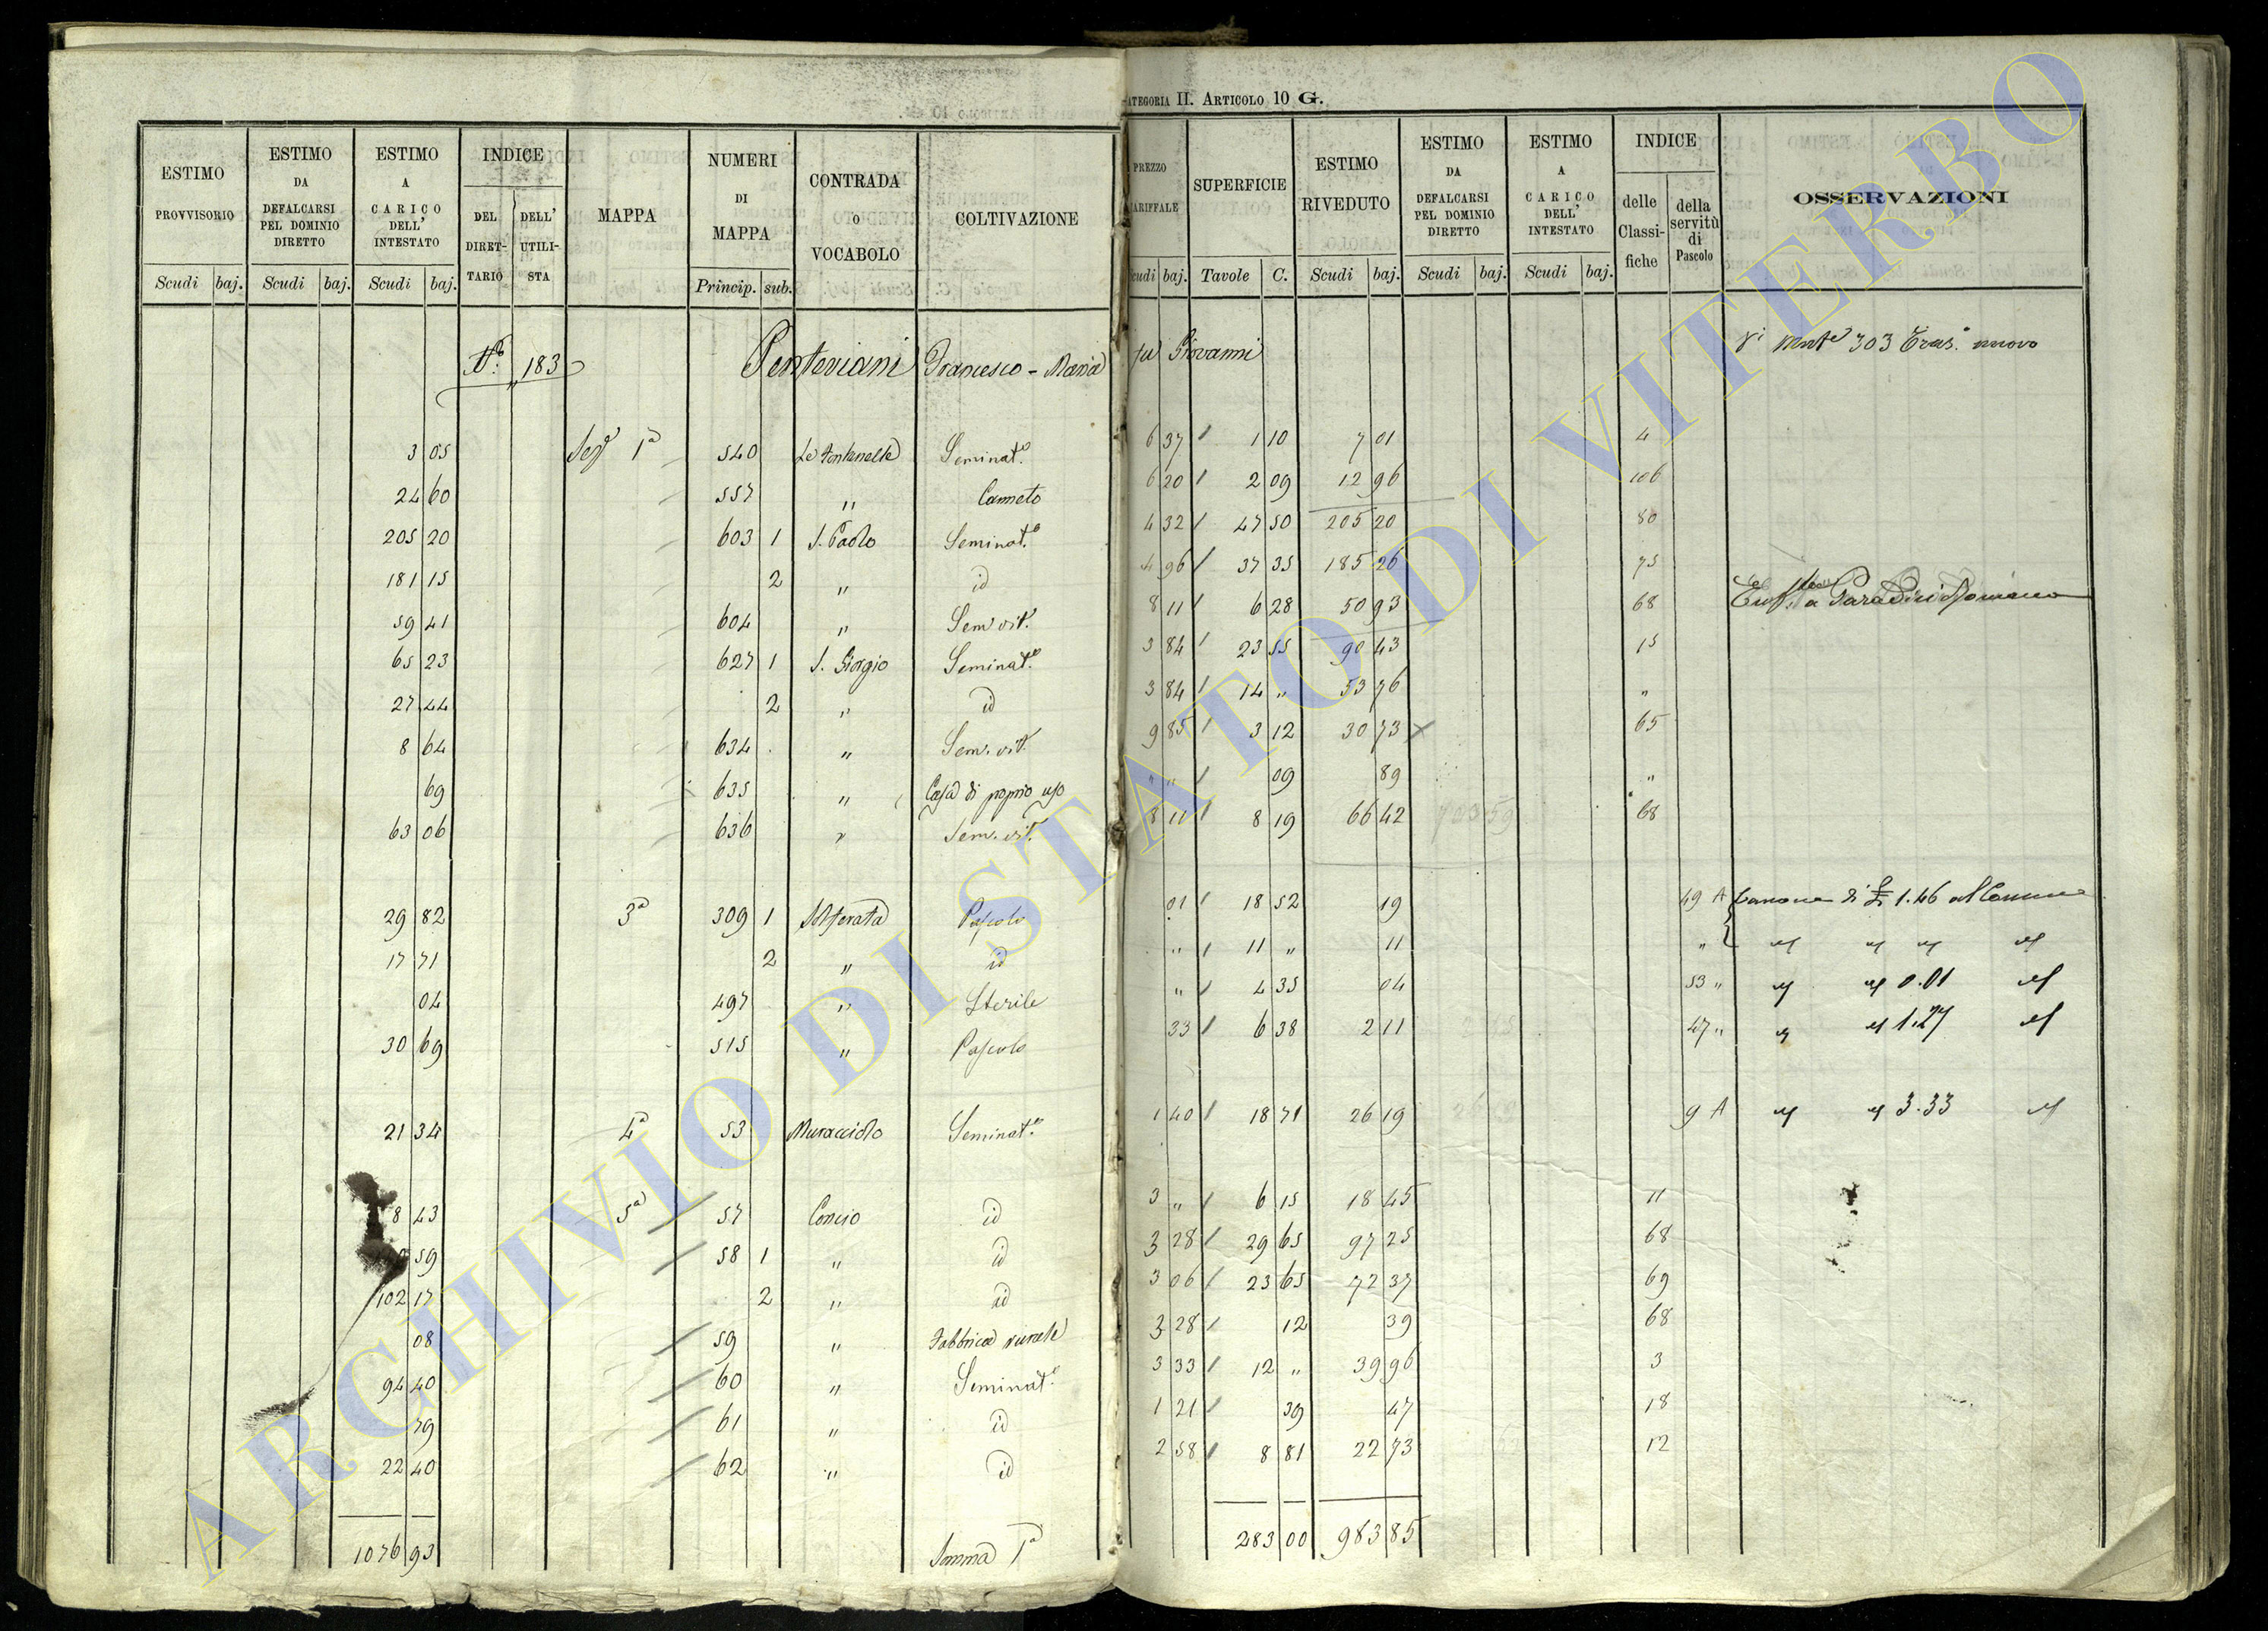 CATEGORIA II. ARTICOLO 10 G.
ESTIMO PROVVISORIO | ESTIMO DA DEFALCARSI PEL DOMINIO DIRETTO | ESTIMO A CARICO DELL' INTESTATO | INDICE | MAPPA | NUMERI DI MAPPA | CONTRADA O VOCABOLO | COLTIVAZIONE | PREZZO TARIFFALE | SUPERFICIE | ESTIMO RIVEDUTO | ESTIMO DA DEFALCARSI PEL DOMINIO DIRETTO | ESTIMO A CARICO DELL' INTESTATO | INDICE | OSSERVAZIONI
DEL DIRETTARIO | DELL' UTILISTA | delle Classifiche | della servitù di Pascolo
Scudi baj. | Scudi baj. | Scudi baj. | Princip. sub. | Scudi baj. | Tavole C. | Scudi baj. | Scudi baj. | Scudi baj.
N.º 183 Penteriani Francesco - Maria fu Giovanni 303 Tras.º nuovo
3 05 1ª 540 Le Fontanelle Seminat.º 6 37 1 10 7 01 4
24 60 557 " Canneto 6 20 2 09 12 96 106
205 20 603 1 S. Paolo Seminat.º 4 32 47 50 205 20 80
181 15 2 " id 4 96 37 35 185 26 75
59 41 604 " Sem vit.º 8 11 6 28 50 93 68
65 23 627 1 S. Giorgio Seminat.º 3 84 23 55 90 43 15
27 44 2 " id 3 84 14 " 53 76 "
8 64 634 " Sem. vit.º 9 85 3 12 30 73 65
69 635 " Casa di proprio uso " " 09 89 "
63 06 636 " Sem. vit.º 8 11 8 19 66 42 68
29 82 3ª 309 1 Solferata Pascolo 01 18 52 19 49 A Canone di £ 1.46 al Comune
17 71 2 " id " 11 " 11 "
04 497 " Sterile " 4 35 04 53 " 0.01
30 69 515 " Pascolo 33 6 38 2 11 47 " 1.27
21 34 4ª 53 Muracciolo Seminat.º 1 40 18 71 26 19 9 A 3.33
8 43 5ª 57 Concio id 3 " 6 15 18 45 11
59 58 1 " id 3 28 29 65 97 25 68
102 17 2 " id 3 06 23 65 72 37 69
08 59 " Fabbrica rurale 3 28 12 39 68
94 40 60 " Seminat.º 3 33 12 " 39 96 3
79 61 " id 1 21 39 47 18
22 40 62 " id 2 58 8 81 22 73 12
1076 93 Somma 1ª 283 00 983 85
ARCHIVIO DI STATO DI VITERBO